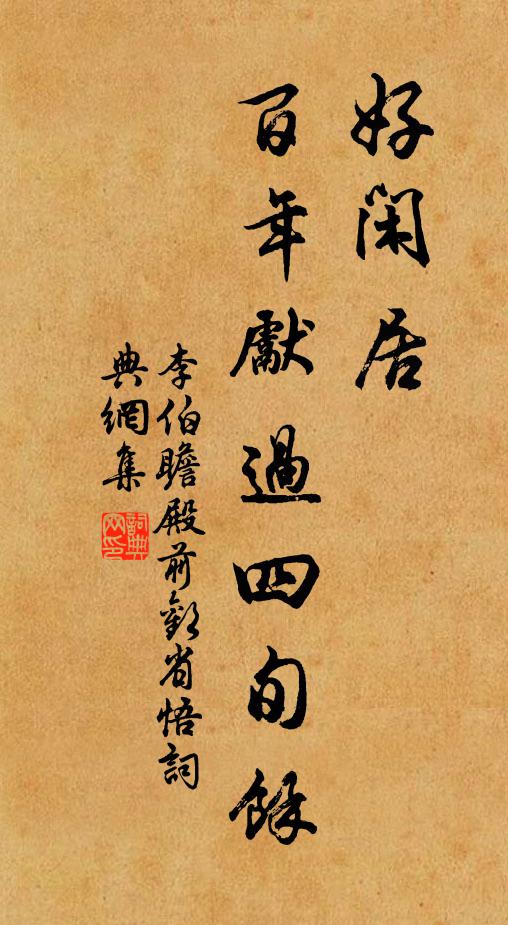 好閑居
百年獻過四旬餘
李伯瞻殿前歡省悟詞
典網集
詞典網印